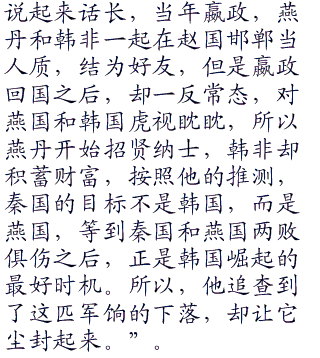 说起来话长，当年嬴政，燕
丹和韩非一起在赵国邯郸当
人质，结为好友，但是嬴政
回国之后，却一反常态，对
燕国和韩国虎视眈眈，所以
燕丹开始招贤纳士，韩非却
积蓄财富，按照他的推测，
秦国的目标不是韩国，而是
燕国，等到秦国和燕国两败
俱伤之后，正是韩国崛起的
最好时机。所以，他追查到
了这匹军饷的下落，却让它
尘封起来。”。